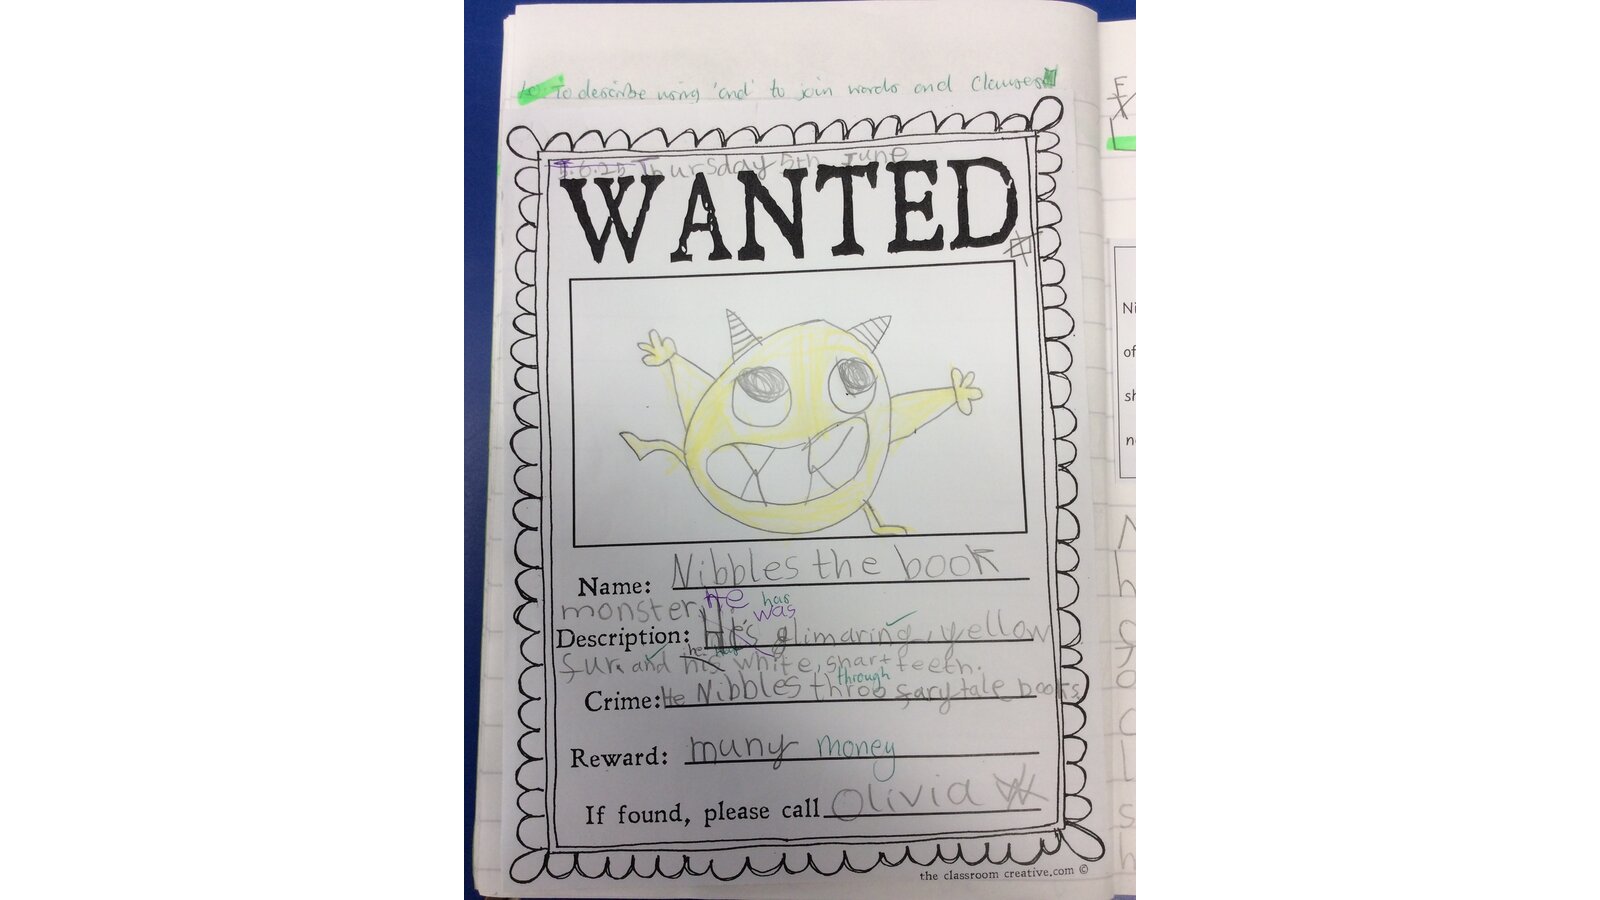 LO To describe using 'and' to join words and Clauses
5.6.25 Thursday 5th June
WANTED
Name: Nibbles the book
monster. He has
was
Description: He's glimaring, yellow
he has
fur and his white, shart teeth.
through
Crime: He Nibbles throo farytale books
Reward: muny money
If found, please call Olivia
the classroom creative.com ©
Ni
of
sh
n